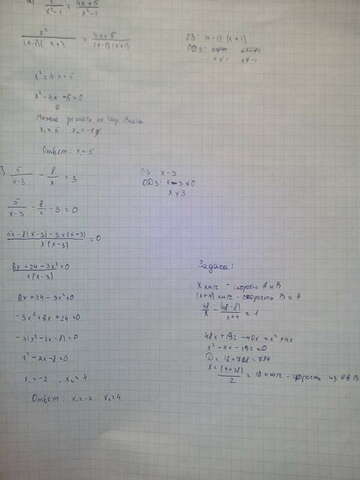 x²/(x²-1) = (4x+5)/(x²-1)
x²/((x-1)(x+1)) = (4x+5)/((x-1)(x+1))
ОЗ: (x-1)(x+1)
ОДЗ:
x≠1 x≠-1
x² = 4x+5
x²-4x-5=0
Можно решить по Виета
x₁=5 x₂=-1
Ответ: x=5
5/(x-3) - 8/x = 3
ОЗ: x-3
ОДЗ: x-3≠0
x≠3
5/(x-3) - 8/x - 3 = 0
(5x-8(x-3)-3x(x-3))/(x(x-3)) = 0
(6x+24-3x²)/(x(x-3)) = 0
6x+24-3x²=0
-3x²+6x+24=0
-3(x²-2x-8)=0
x²-2x-8=0
x₁=-2 x₂=4
Ответ: x₁=-2 x₂=4
Задача:
x км/ч - скорость из A в B
(x+4) км/ч - скорость B в A
48/x - (48-8)/(x+4) = 1
48x+192-40x=x²+4x
x²-4x-192=0
D=16+768=784
x=(4+28)/2=16 км/ч - скорость из A в B